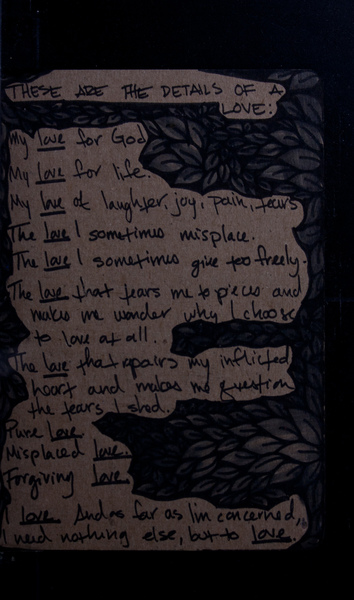 THESE ARE THE DETAILS OF A
LOVE:
My love for God
My love for life.
My love of laughter, joy, pain, tears
The love I sometimes misplace.
The love I sometimes give too freely.
The love that tears me to pieces and
makes me wonder why I choose
to love at all..
The love that repairs my inflicted
heart and makes me question
the tears I shed.
Pure Love.
Misplaced love.
Forgiving love.
I love. And as far as I'm concerned,
I need nothing else, but to love.